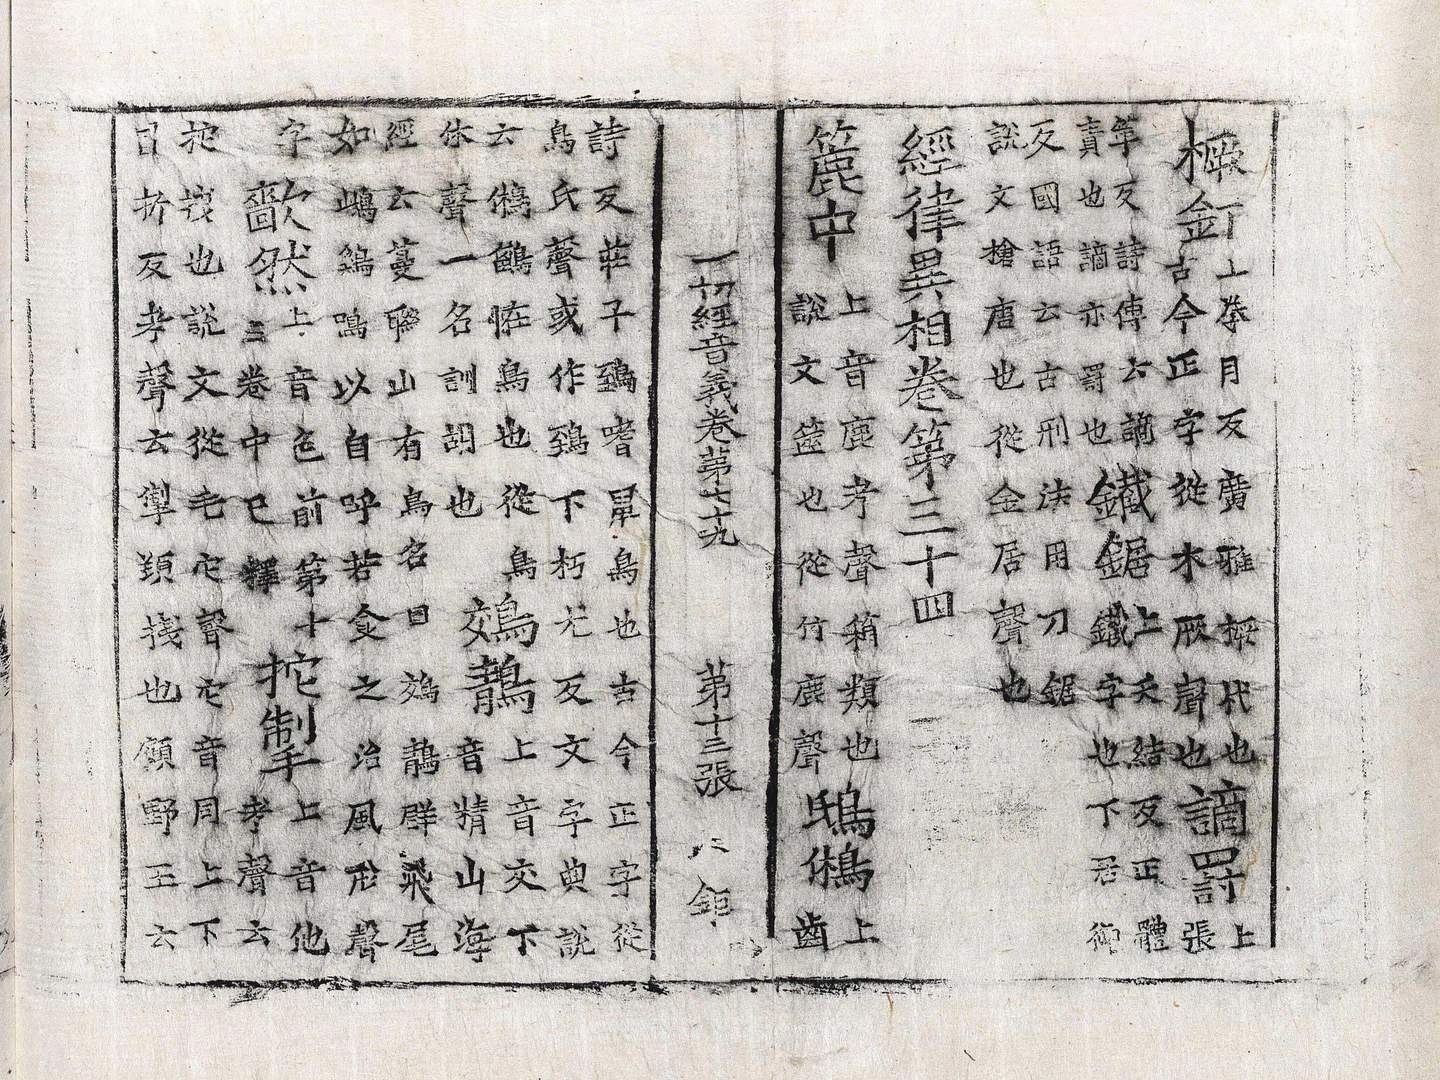 橛釘上拳月反廣雅橛杙也古今正字從木厥聲也謫罰上張
革反詩傳云謫責也謫亦罰也鐵鋸上天結反正體鐵字也下居御
反國語云古刑法用刀鋸說文槍唐也從金居聲也
經律異相卷第三十四
簏中上音鹿考聲箱類也說文篋也從竹鹿聲鴟鵂上齒
一切經音義卷第七十九 第十三張 八 鉅
詩反莊子鵄嗜鼠鳥也古今正字從鳥氏聲或作鵄下朽尤反文字典說
云鵂鶹恠鳥也從鳥休聲一名訓胡也鵁鶄上音交下音精山海
經云蔓聯山有鳥名曰鵁鶄群飛尾如鴟鷄鳴以自呼若食之治風煞聲
字㱇然上音色前第十三卷中已釋拕掣上音他考聲云
拕拽也說文從毛它聲它音同上下日折反考聲云掣頓拽也顧野王云